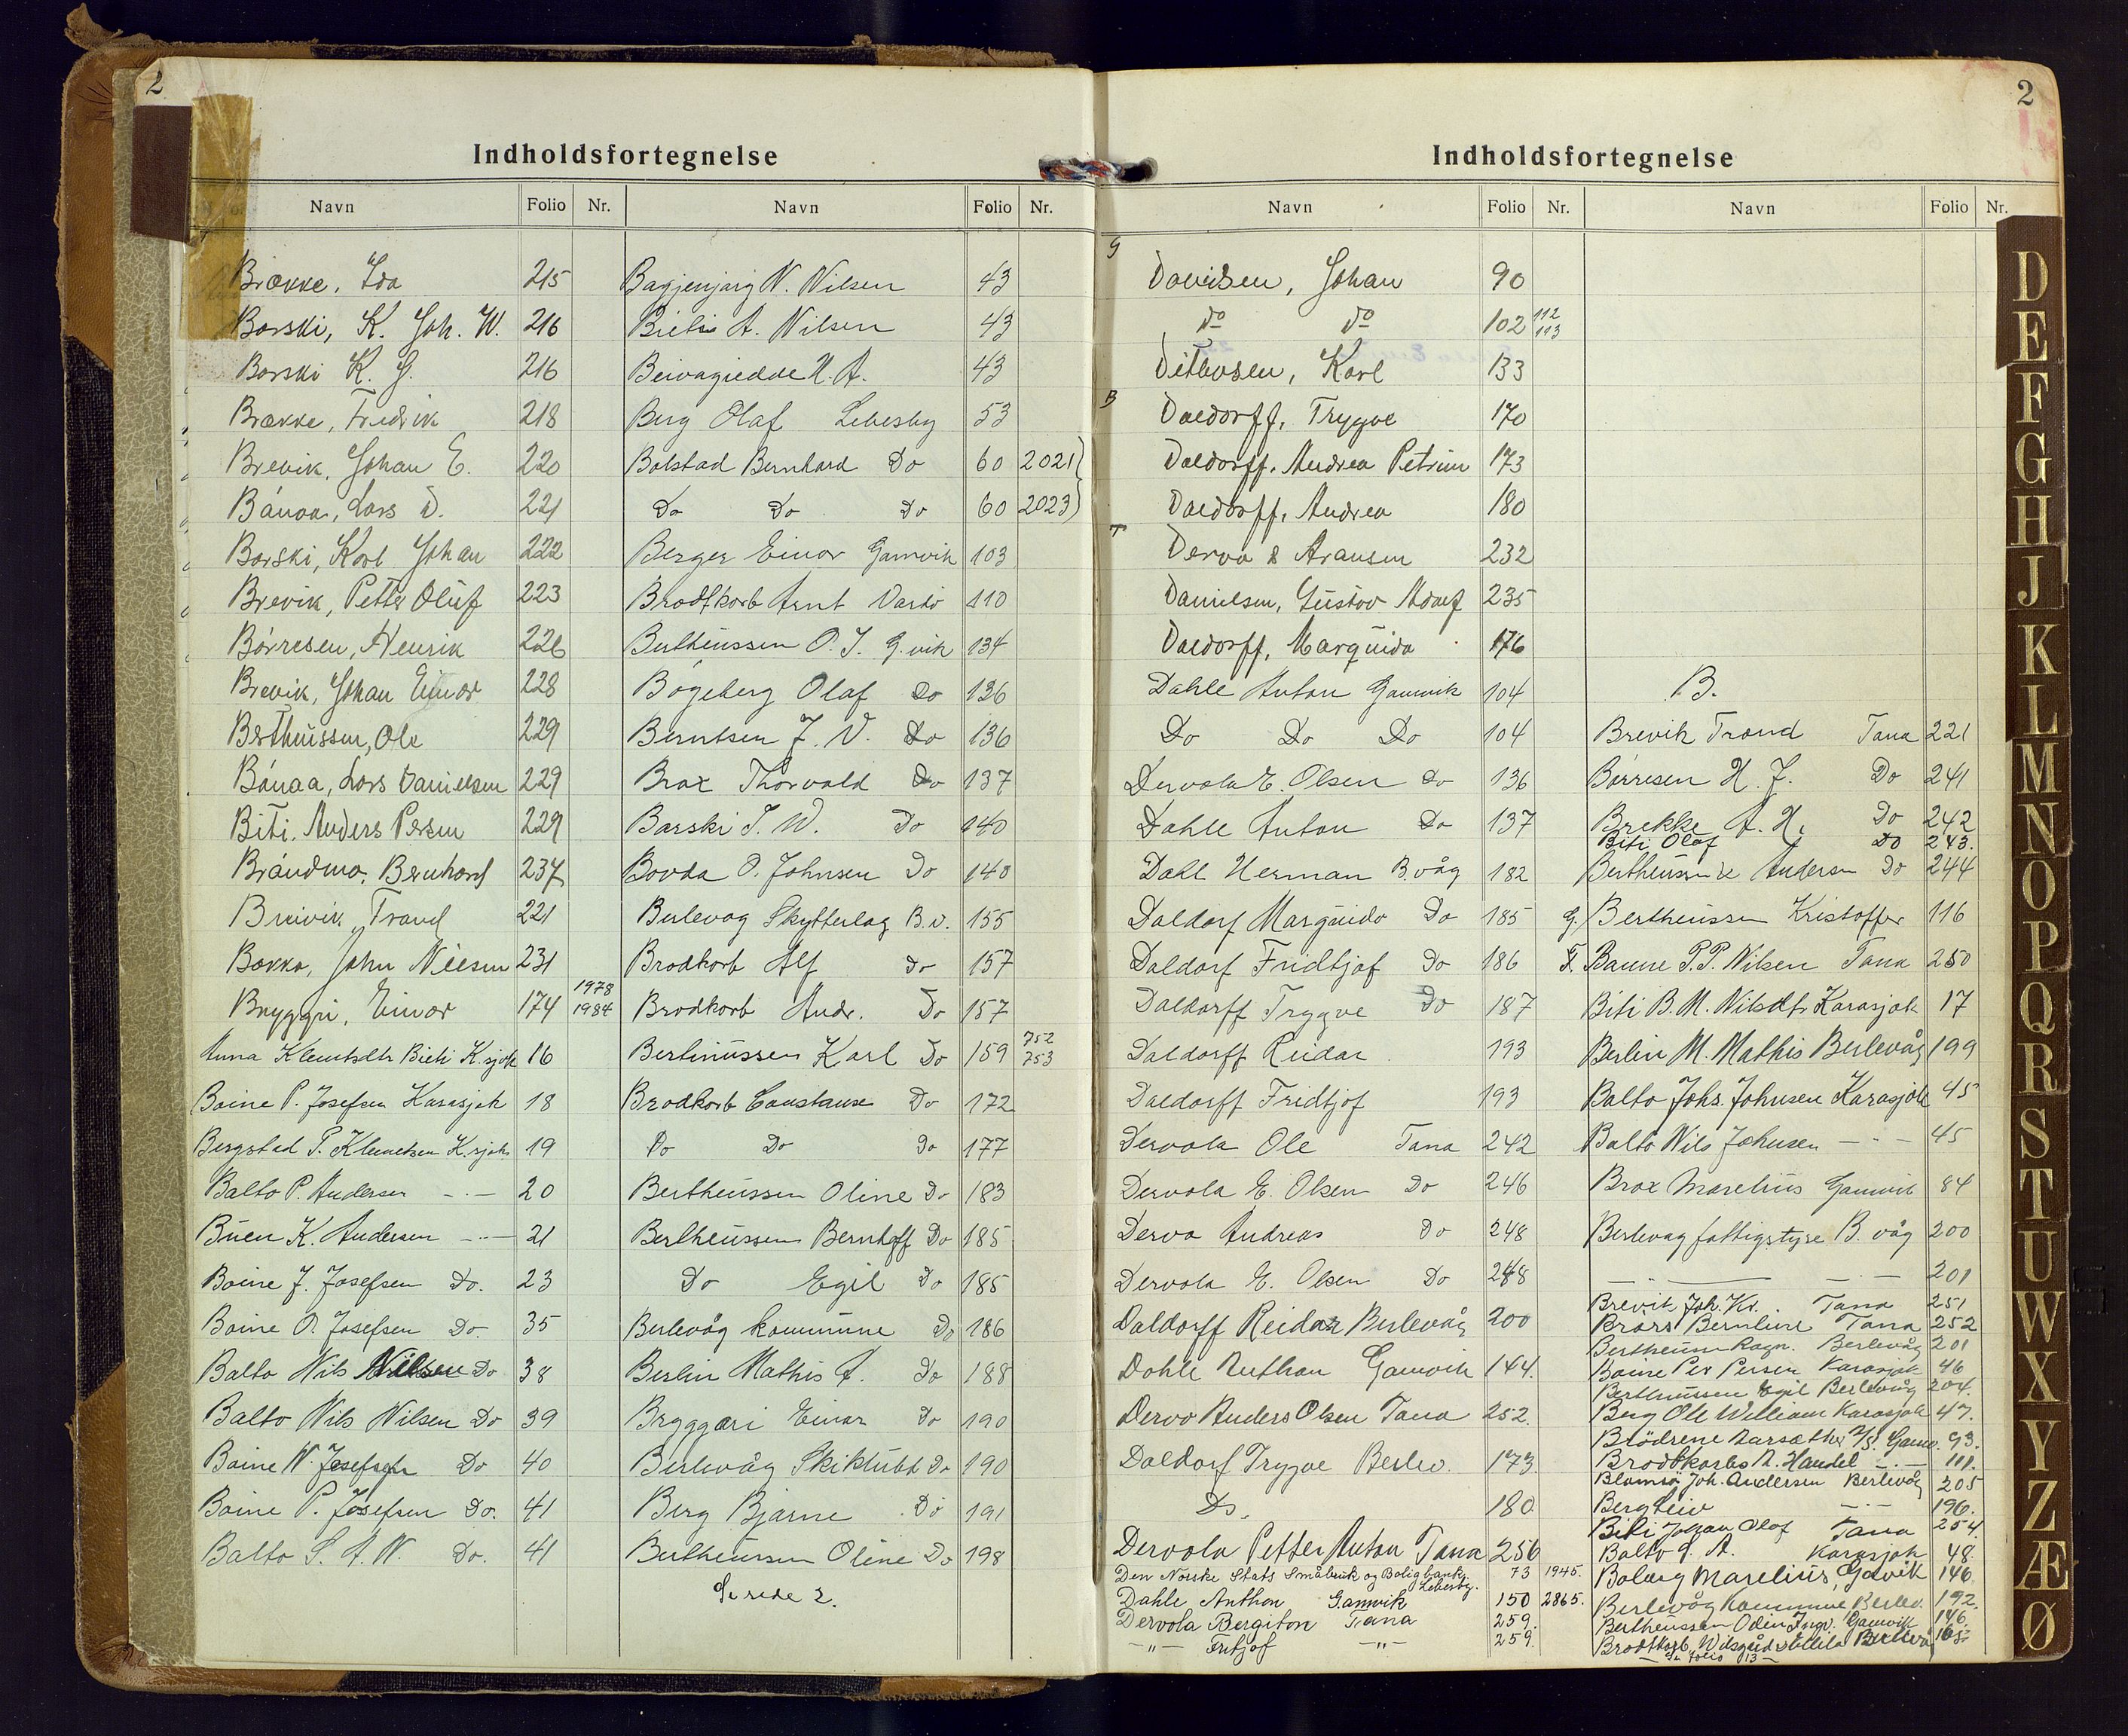 2
Indholdsfortegnelse
Navn Folio Nr. Navn Folio Nr.
Brække, Ida 215
Borski, K. Joh. W. 216
Borski K. G. 216
Brække, Fredrik 218
Brevik, Johan E. 220
Bánaa, Lars D. 221
Borski, Karl Johan 222
Brevik, Petter Oluf 223
Börresen, Henrik 226
Brevik, Johan Einar 228
Bertheussen, Ole 229
Bánaa, Lars Danielsen 229
Biti. Anders Persen 229
Brándmo, Bernhard 237
Breivik, Trand 221
Bokka, John Nilsen 231
Bryggri, Einar 174 1978 1984
Anna Klemtsdtr Bieti K.sjok 16
Boine P. Josefsen Karasjok 18
Bergstad P. Klemetsen K.sjok 19
Balto P. Andersen -..- 20
Buen K. Andersen -..- 21
Boine J. Josefsen Do. 23
Boine O. Josefsen Do. 35
Balto Nils Nilsen Do 38
Balto Nils Nilsen Do 39
Boine N. Josefsen Do 40
Boine P. Josefsen Do. 41
Balto S. A. N. Do. 41
Bagjenjarg N. Nilsen 43
Bieti A. Nilsen 43
Beivagiedde N. A. 43
Berg Olaf Lebesby 53
Bolstad Bernhard Do 60 2021)
Do Do Do 60 2023)
Berger Einar Gamvik 103
Brodtkorb Arnt Vardö 110
Bertheussen O. J. G.vik 134
Bögeberg Olaf Do 136
Berntsen J. V. Do 136
Brox Thorvald Do 137
Barski J. W. Do 140
Bovda O. Johnsen Do 140
Berlevag Skytterlag B.v. 155
Brodkorb Alf Do 157
Brodkorb Andr. Do 157
Bertinussen Karl Do 159 752 753
Brodkorb Constanse Do 172
Do Do Do 177
Bertheussen Oline Do 183
Bertheussen Bernhoff Do 185
Do Egil Do 185
Berlevåg kommune Do 186
Berlin Mathis A. Do 188
Bryggari Einar Do 190
Berlevåg Skiklubb Do 190
Berg Bjarne Do 191
Bertheussen Oline Do 198
Se side 2.
2
Indholdsfortegnelse
Navn Folio Nr. Navn Folio Nr.
G
Davidsen, Johan 90
Do Do 102 112 113
Ditlevsen, Karl 133
B Daldorff, Trygve 170
Daldorff, Andrea Petrine 173
Daldorff, Andrea 180
T Dervo & Aransen 232
Danielsen, Gustav Adolf 235
Daldorff, Margüido 176
Dahle Anton Gamvik 104
Do Do Do 104
Dervola E. Olsen Do 136
Dahle Anton Do 137
Dahl Herman B.våg 182
Daldorf Margüido Do 185
Daldorf Fridtjof Do 186
Daldorff Trygve Do 187
Daldorff Reidar 193
Daldorff Fridtjof 193
Dervola Ole Tana 242
Dervola E. Olsen Do 246
Dervo Andreas Do 248
Dervola E. Olsen Do 248
Daldorff Reidar Berlevåg 200
Dahle Anthon Gamvik 144.
Dervo Anders Olsen Tana 252.
Daldorf Trygve Berlev. 173
Do. 180
Dervola Petter Anton Tana 256
Den Norske Stats Småbruk og Boligbank, Lebesby. 73 1945.
Dahle Anthon Gamvik 150 2865.
Dervola Bergiton Tana 259.
-"- Fritjof -"- 259.
B.
Brevik Trond Tana 221
Börresen H. J. Do 241
Brekke A. H. Do 242
Biti Olaf Do 243.
Bertheussen & Andersen Do 244
G. Bertheussen Kristoffer 116
T. Baune P.P. Nilsen Tana 250
Biti B. M. Nilsdtr Karasjok 17
Berlin M. Mathis Berlevåg 199
Balto Johs. Johnsen Karasjok 45
Balto Nils Johnsen -"- 45
Brox Marelius Gamvik 84
Berlevag fattigstyre B. våg 200
-"- -"- 201
Brevik Joh. Kr. Tana 251
Brors Bernline Tana 252
Bertheussen Ragn. Berlevåg 201
Boine Per Persen Karasjok 46
Bertheussen Egil Berlevåg 204.
Berg Ole William Karasjok 47.
Brödrene Aarsæther A/S. Gamv. 93.
Brodtkorbs A. Handel -"- 111.
Blomsö Joh. Andersen Berlevåg 205
Berg Leiv -"- 196.
Biti Johan Olaf Tana 254.
Balto S. A. Karasjok 48.
Boberg Marelius, Gavik 146.
Berlevåg Kommune Berlev. 192.
Bertheussen Odin Ingv. Gamvik 146.
Brodtkorb, Wilsgård Berlevå 165
Se folio 13
D
E
F
G
H
J
K
L
M
N
O
P
Q
R
S
T
U
W
X
Y
Z
Æ
Ø